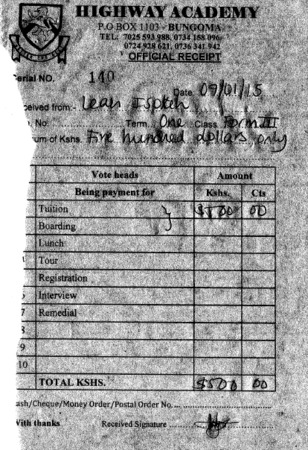 HIGHWAY ACADEMY
P.O BOX 1103 - BUNGOMA
TEL: 7025 593 988, 0734 158 096
0724 928 621, 0736 341 942
OFFICIAL RECEIPT
erial NO. 140
Date 09/01/15
ceived from:- Leah
. No. Term One Class Form III
um of Kshs. Five hundred dollars only
Vote heads Amount
Being payment for Kshs. Cts
Tuition $500 00
Boarding
Lunch
Tour
Registration
Interview
7 Remedial
8
9
10
TOTAL KSHS. $500 00
ash/Cheque/Money Order/Postal Order No.
With thanks Received Signature